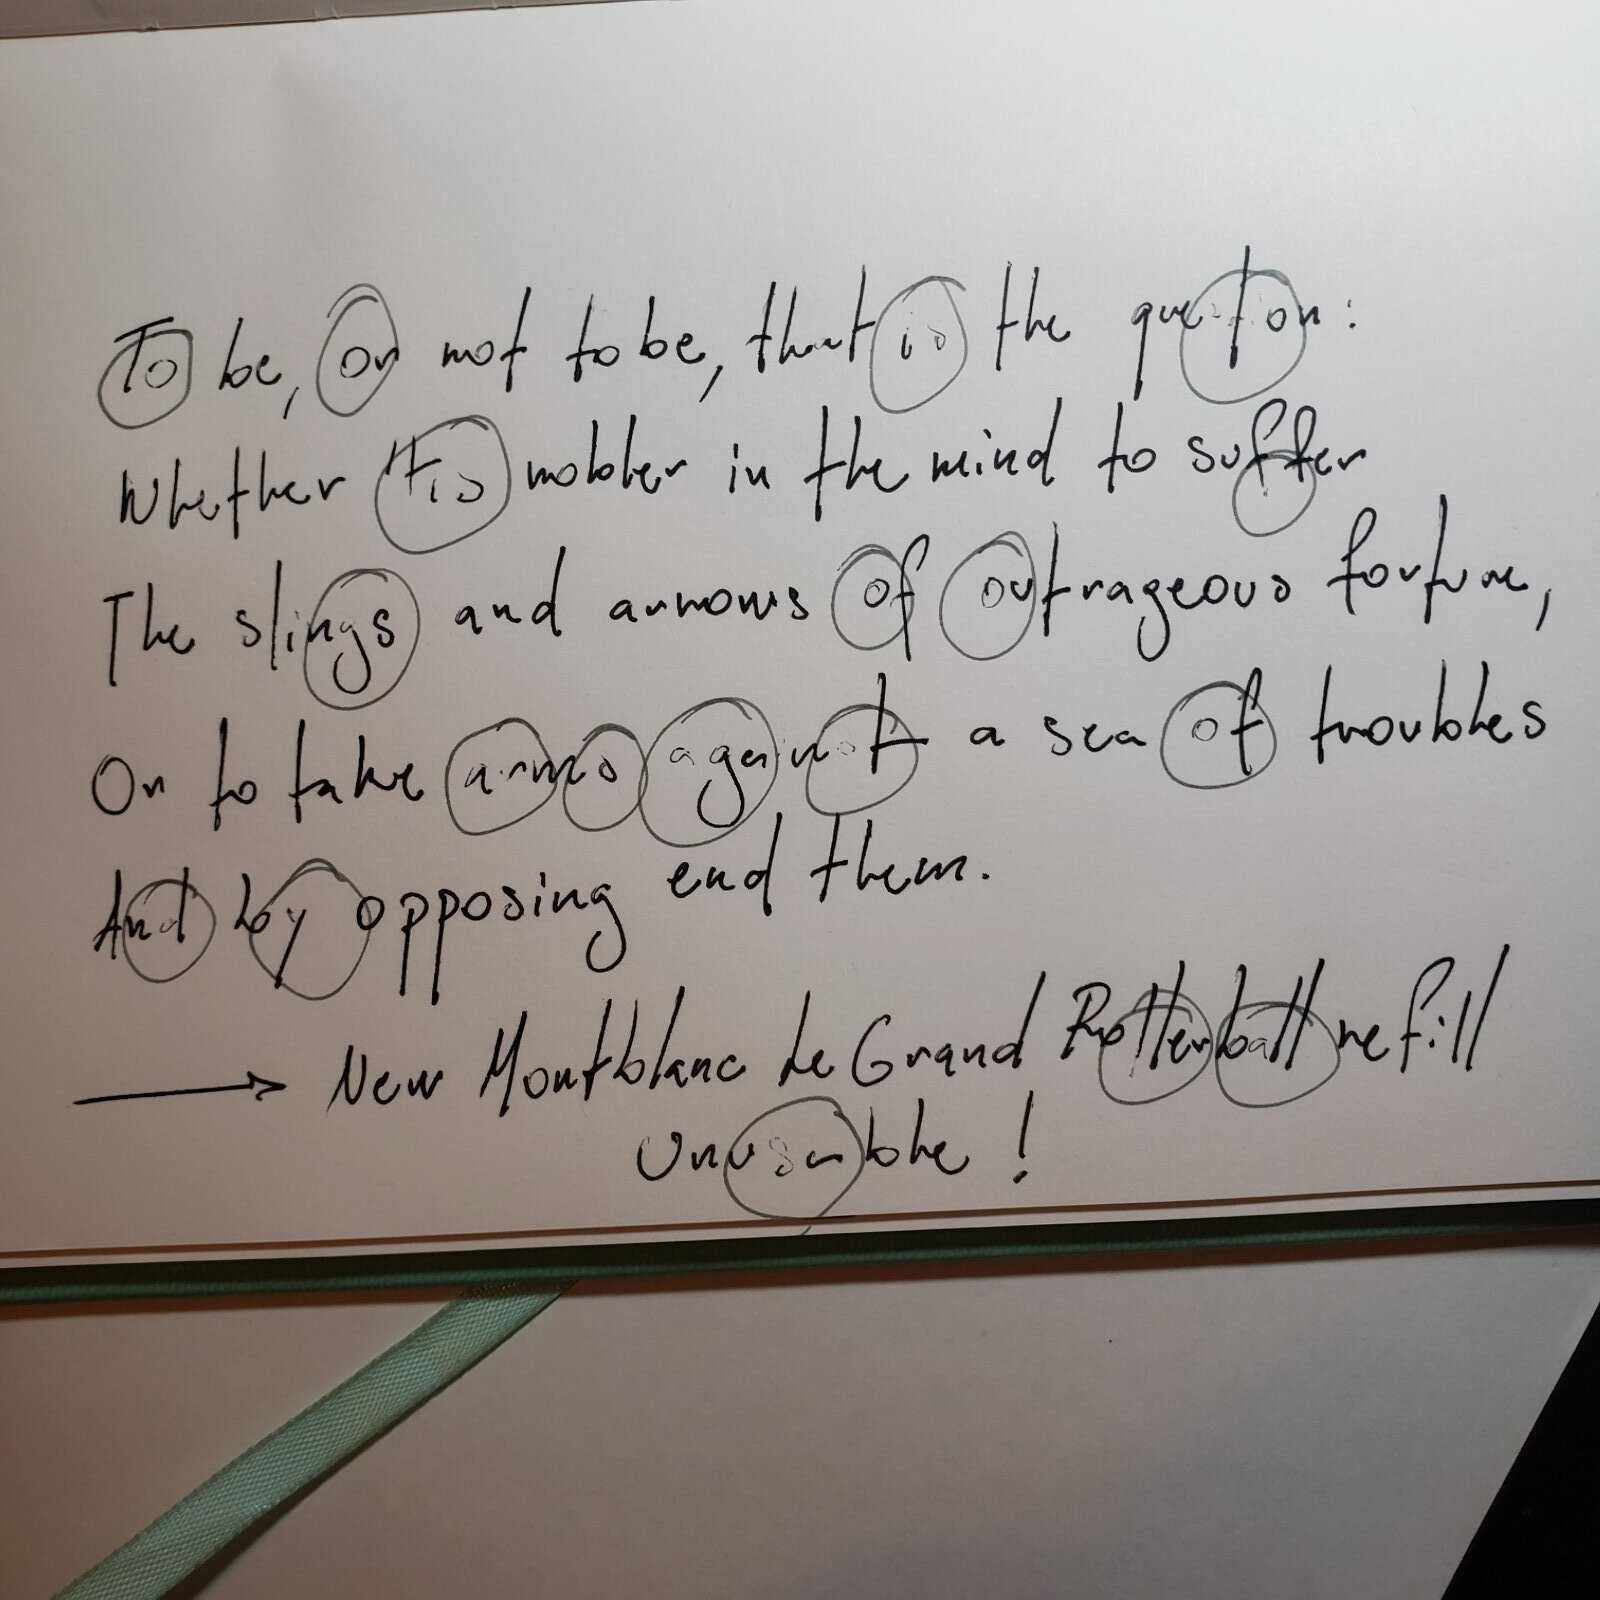 To be, or not to be, that is the question:
Whether 'tis nobler in the mind to suffer
The slings and arrows of outrageous fortune,
Or to take arms against a sea of troubles
And by opposing end them.
→ New Montblanc LeGrand Rollerball refill
Unusable!